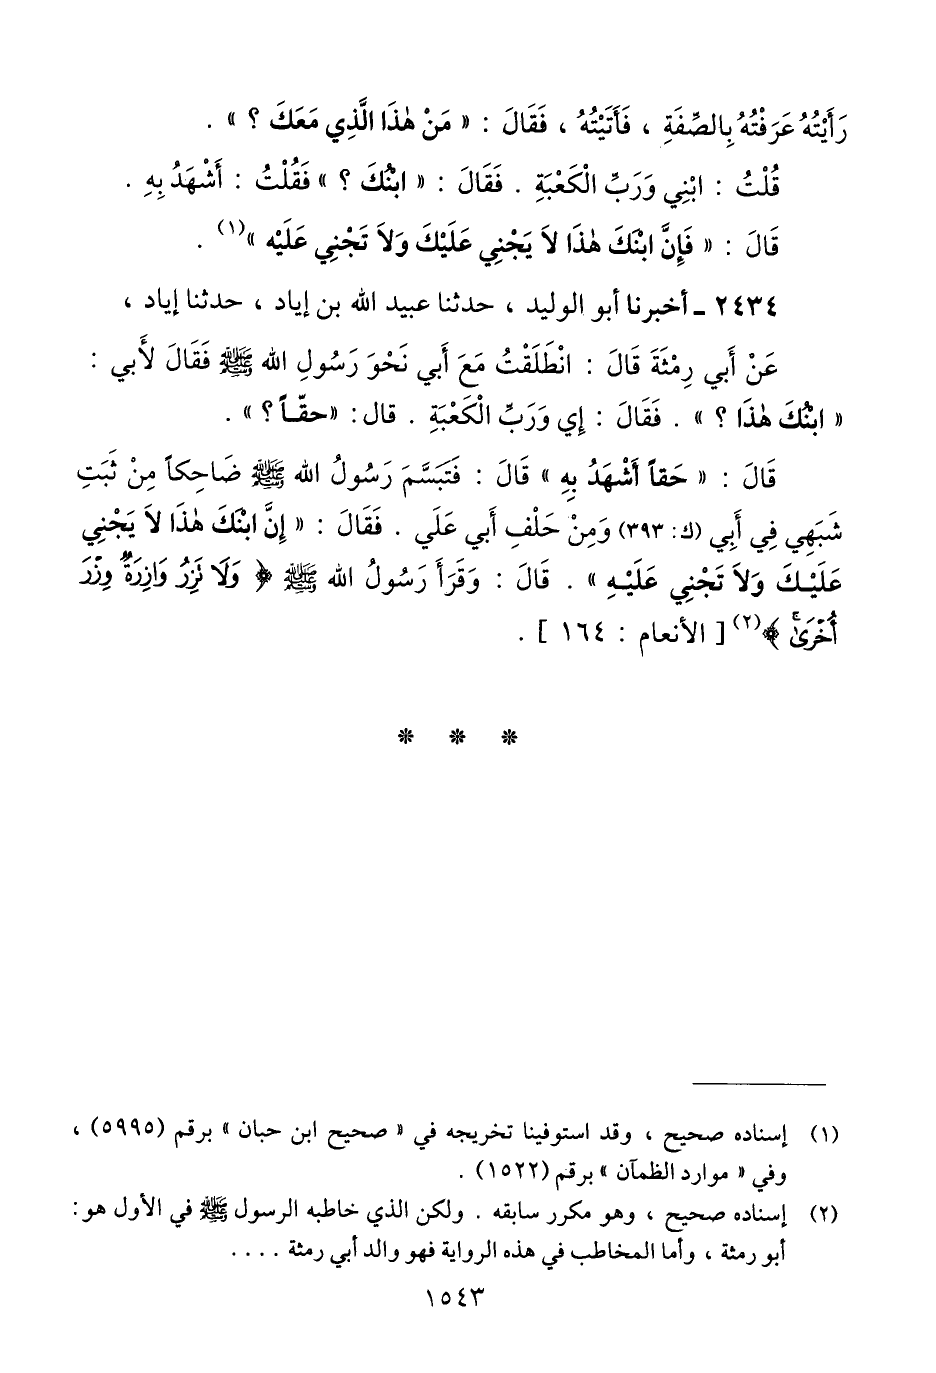 رَأَيْتُهُ عَرَفْتُهُ بِالصِّفَةِ ، فَأَتَيْتُهُ ، فَقَالَ : « مَنْ هٰذَا الَّذِي مَعَكَ ؟ » .
قُلْتُ : ابْنِي وَرَبِّ الْكَعْبَةِ . فَقَالَ : « ابْنُكَ ؟ » فَقُلْتُ : أَشْهَدُ بِهِ .
قَالَ : « فَإِنَّ ابْنَكَ هٰذَا لاَ يَجْنِي عَلَيْكَ وَلاَ تَجْنِي عَلَيْهِ »(١) .
٢٤٣٤ ـ أخبرنا أبو الوليد ، حدثنا عبيد الله بن إياد ، حدثنا إياد ،
عَنْ أَبي رِمْثَةَ قَالَ : انْطَلَقْتُ مَعَ أَبي نَحْوَ رَسُولِ الله ﷺ فَقَالَ لأَبي :
« ابْنُكَ هٰذَا ؟ » . فَقَالَ : إي وَرَبِّ الْكَعْبَةِ . قال : «حقّاً ؟ » .
قَالَ : « حَقاً أَشْهَدُ بِهِ » قَالَ : فَتَبَسَّمَ رَسُولُ الله ﷺ ضَاحِكاً مِنْ ثَبَتِ
شَبَهِي فِي أَبِي (ك: ٣٩٣) وَمِنْ حَلْفِ أَبي عَلَي . فَقَالَ : « إِنَّ ابْنَكَ هٰذَا لاَ يَجْنِي
عَلَيْكَ وَلاَ تَجْنِي عَلَيْهِ » . قَالَ : وَقَرَأَ رَسُولُ الله ﷺ ﴿ وَلَا نَزِرُ وَازِرَةٌ وِزْرَ
أُخْرَىٰ ﴾(٢) [ الأنعام : ١٦٤ ] .
* * *
(١) إسناده صحيح ، وقد استوفينا تخريجه في « صحيح ابن حبان » برقم (٥٩٩٥) ،
وفي « موارد الظمآن » برقم (١٥٢٢) .
(٢) إسناده صحيح ، وهو مكرر سابقه . ولكن الذي خاطبه الرسول ﷺ في الأول هو :
أبو رمثة ، وأما المخاطب في هذه الرواية فهو والد أبي رمثة ....
١٥٤٣